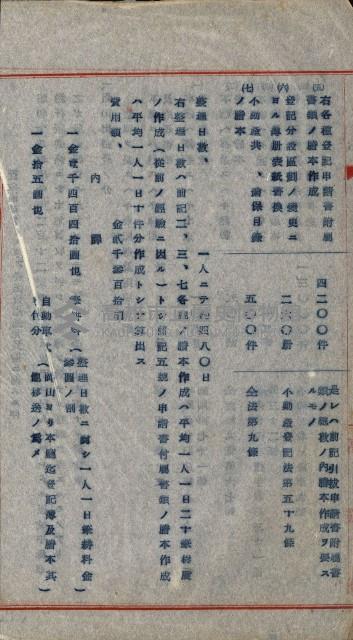 (五) 右各種登記申請書附屬書類ノ謄本作成 四二〇〇件 是レハ前記引拔申請書附屬書類ノ總數ノ內謄本作成ヲ要スルモノ
(六) 登記分設區劃ノ變更ニヨル 二六〇冊 不動產登記法第五十九條
(七) 不動產共 擔保目錄ノ謄本 五〇〇件 仝法第九條
整理日數、 一人ニテ 四八〇日
右整理日數ハ前記二、三、七各種ノ謄本作成ハ平均一人一日二十
ノ作成(從前ノ經驗ニ因ル)トシ前記五號ノ申請書付屬書類ノ謄本作成
ハ平均一人一日十件分作成トシテ算出ス
費用額、 金貳千 百拾
內 譯
一金 千四百四拾圓也 整理日數ニ對シ一人一日 料金 參圓ノ割
一金拾五圓也 自動車代 岡山ヨリ本廳迄登記簿及謄本其ノ他移送ノ爲メ 付分